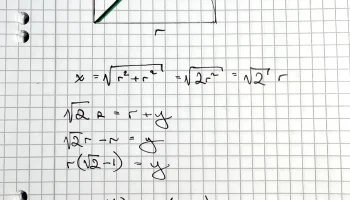 r
x = √(r² + r²) = √(2r²) = √2 r
√2 r = r + y
√2 r - r = y
r(√2 - 1) = y